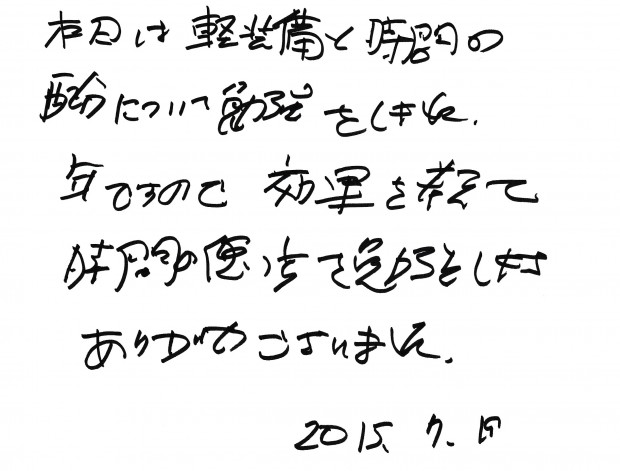 本日は軽装備と時間の
配分について勉強をしました.
年ですので 効果を考えて
時間の使い方を勉強をします
ありがとうございました.
2015. 7.